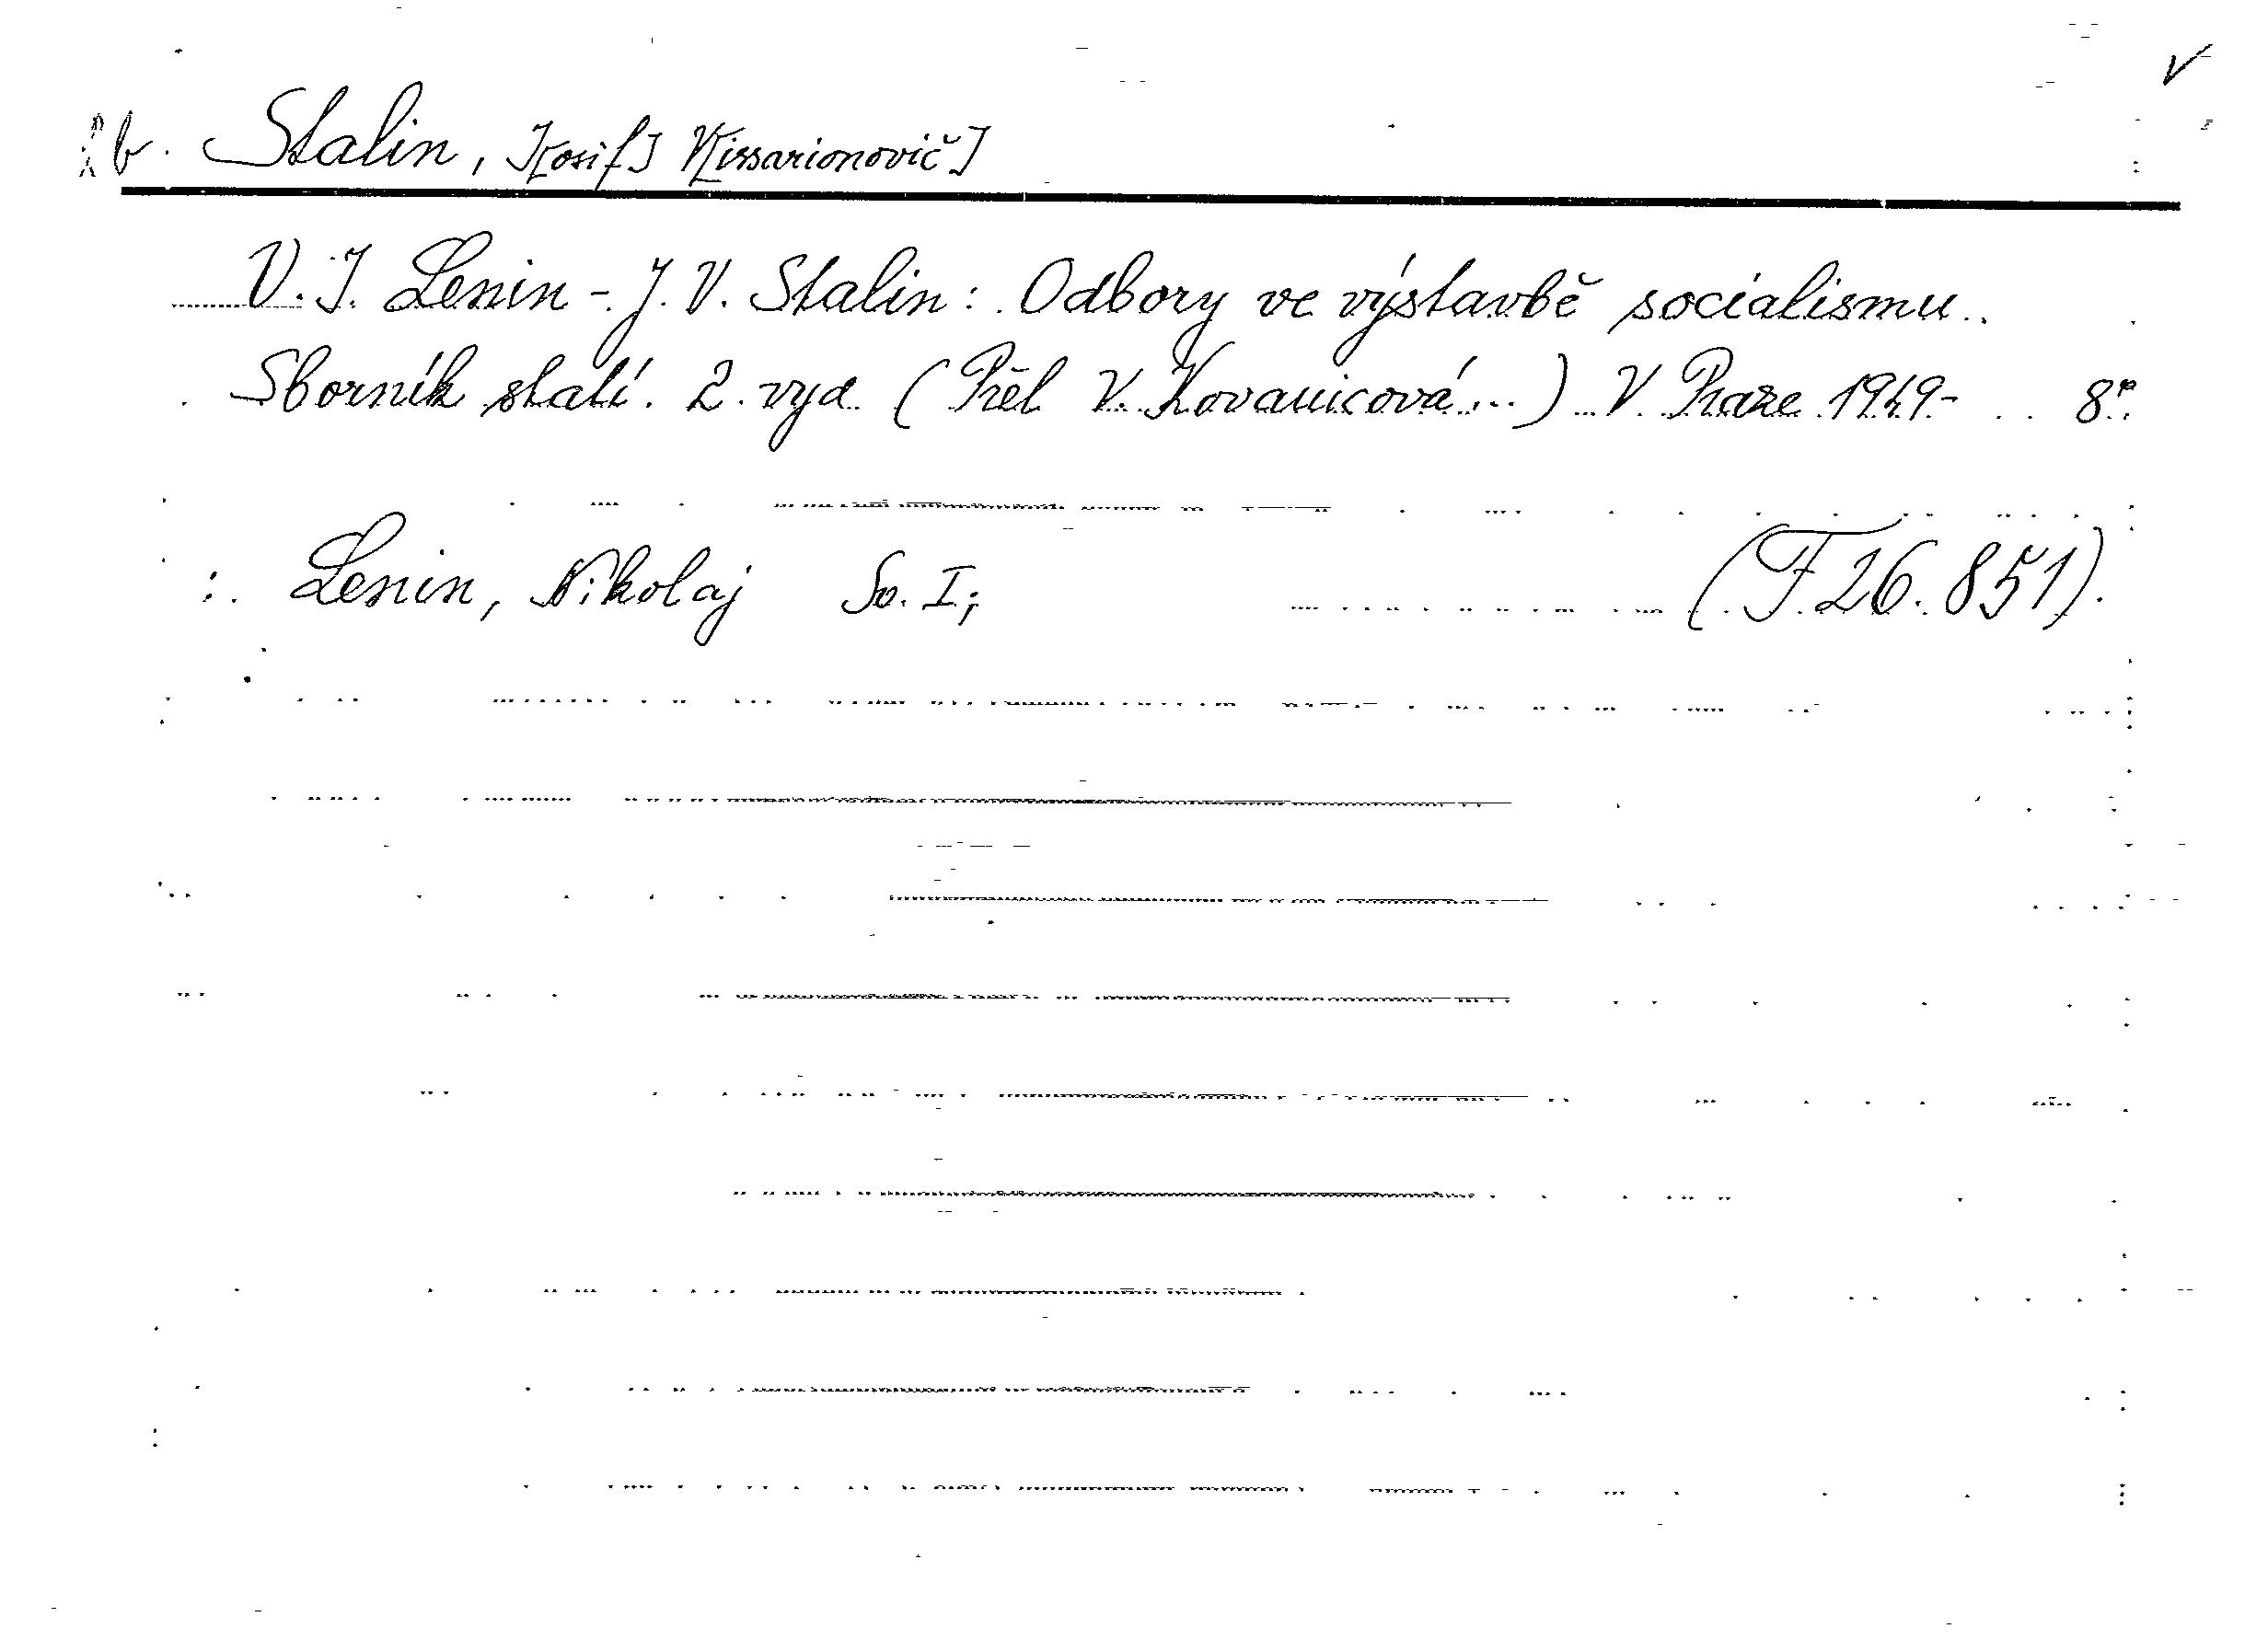 v
b. Stalin, J[osif] V[issarionovič]
V. J. Lenin - J. V. Stalin: Odbory ve výstavbě socialismu.
Sborník statí. 2. vyd. (Přel V. Kovanicová...) V Praze 1949- 8°.
: Lenin, Nikolaj Sv. I; (F 26.851).